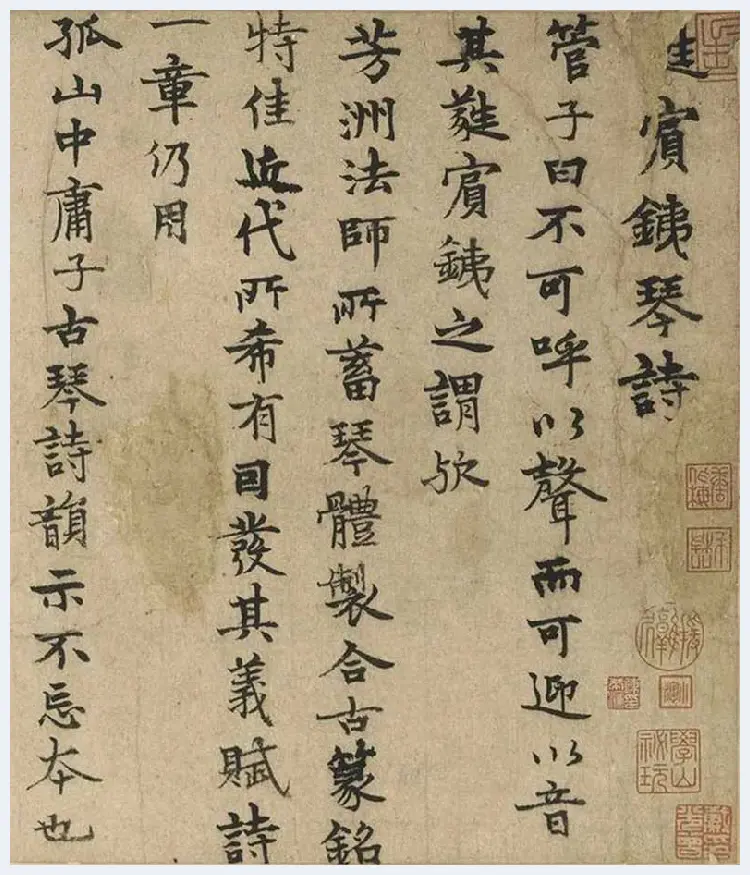 賓銕琴詩
管子曰不可呼以聲而可迎以音
其蕤賓銕之謂欤
芳洲法師所蓄琴體製合古篆銘
特佳近代所希有因發其義賦詩
一章仍用
孤山中庸子古琴詩韻示不忘本也